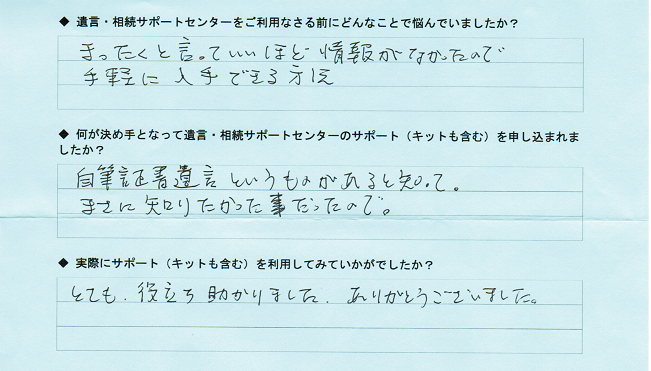 ◆ 遺言・相続サポートセンターをご利用なさる前にどんなことで悩んでいましたか？
まったくと言っていいほど情報がなかったので
手軽に入手できる方法
◆ 何が決め手となって遺言・相続サポートセンターのサポート（キットも含む）を申し込まれま
したか？
自筆証書遺言というものがあると知って。
まさに知りたかった事だったので。
◆ 実際にサポート（キットも含む）を利用してみていかがでしたか？
とても、役立ち助かりました、ありがとうございました。